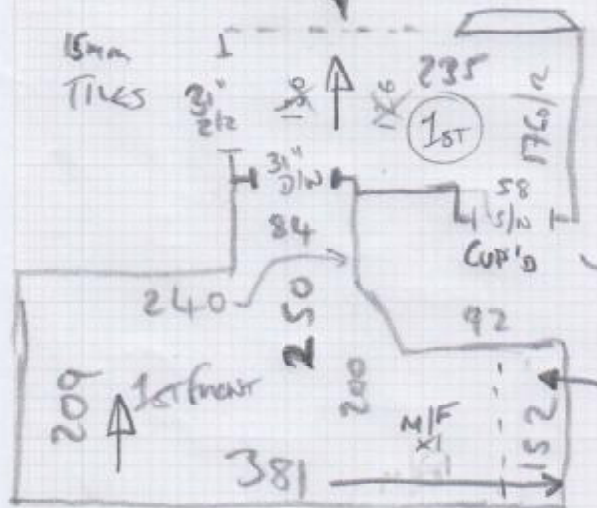 15mm
TILES
31"
2/2
235
1ST
1760/2
31"
D/W
58
S/N
CUP'D
84
240
250
92
209
1ST FRONT
200
M/F
X1
152
381